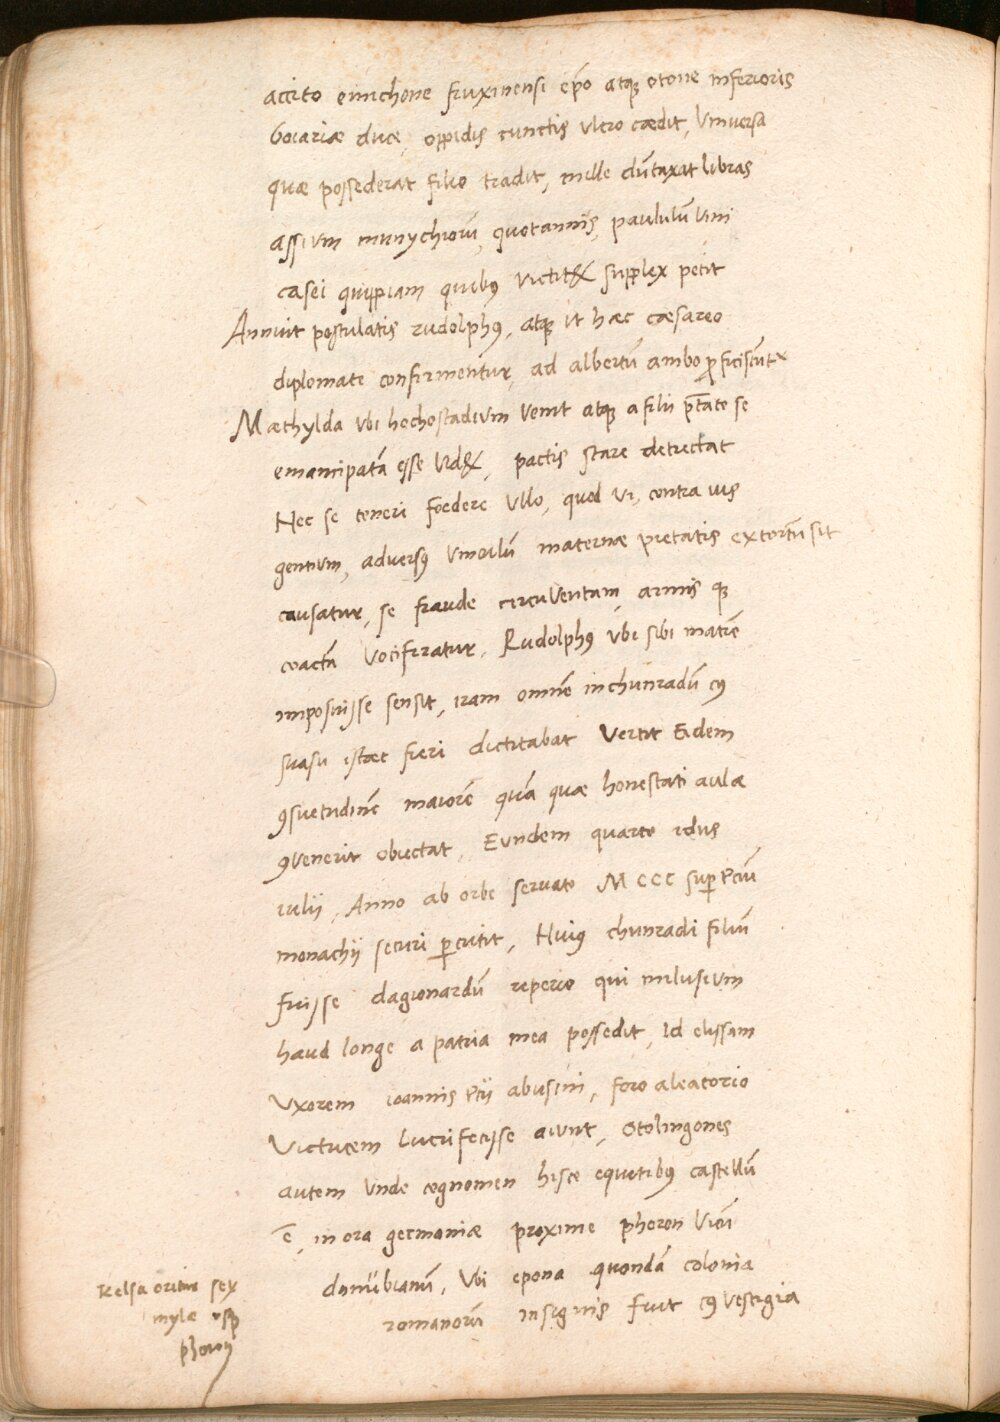 accito emichone fruxinensi ep̄o atq; otone inferioris
boiariæ duce, oppidis cunctis vltro cædit, Vniuersa
quæ possederat filio tradit, mille dūtaxat libras
assium munychiorū, quotannis, paululū vini
casei quippiam quibꝰ victit& supplex petit
Annuit postulatis rudolphꝰ, atq; vt hæc cæsareo
diplomate confirmentur, ad albertū ambo ꝓficiscūt
Mæthylda vbi hochostadium venit atq; a filii p̄tate se
emancipatā esse vid&, pactis stare detrectat
Nec se teneri foedere vllo, quod vi, contra ius
gentium, aduersꝰ vinculū maternæ pietatis extortū sit
causatur, se fraude circūuentam, armis q;
coactā vociferatur. Rudolphꝰ vbi sibi matrē
imposuisse sensit, iram omnē in chunradū cꝰ
suasu istæc fieri dictitabat vertit Eidem
ꝯsuetudinē maiorē quā quæ honestati aulæ
ꝯuenerit obiectat, Eundem quarto idus
iulii, Anno ab orbe seruato M CCC supͣ tciū
monachii securi ꝑcutit, Huiꝰ chunradi filiū
fuisse dagionardū reperio qui milusium
haud longe a patria mea possedit, Id elissam
Vxorem ioannis tcii abusini, foro aleatorio
Victucem lucrifecisse aiunt, Otolingones
autem vnde cognomen hisce equitibꝰ castellū
ē, in ora germaniæ proxime pheron vicū
danubianū, Vbi epona quondā colonia
romanorū insignis fuit cꝰ vestigia
Kelsa oritur sex
mylæ